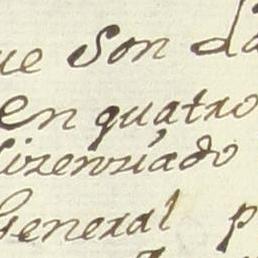 ue Son da
en quatro
lizenziado
General p